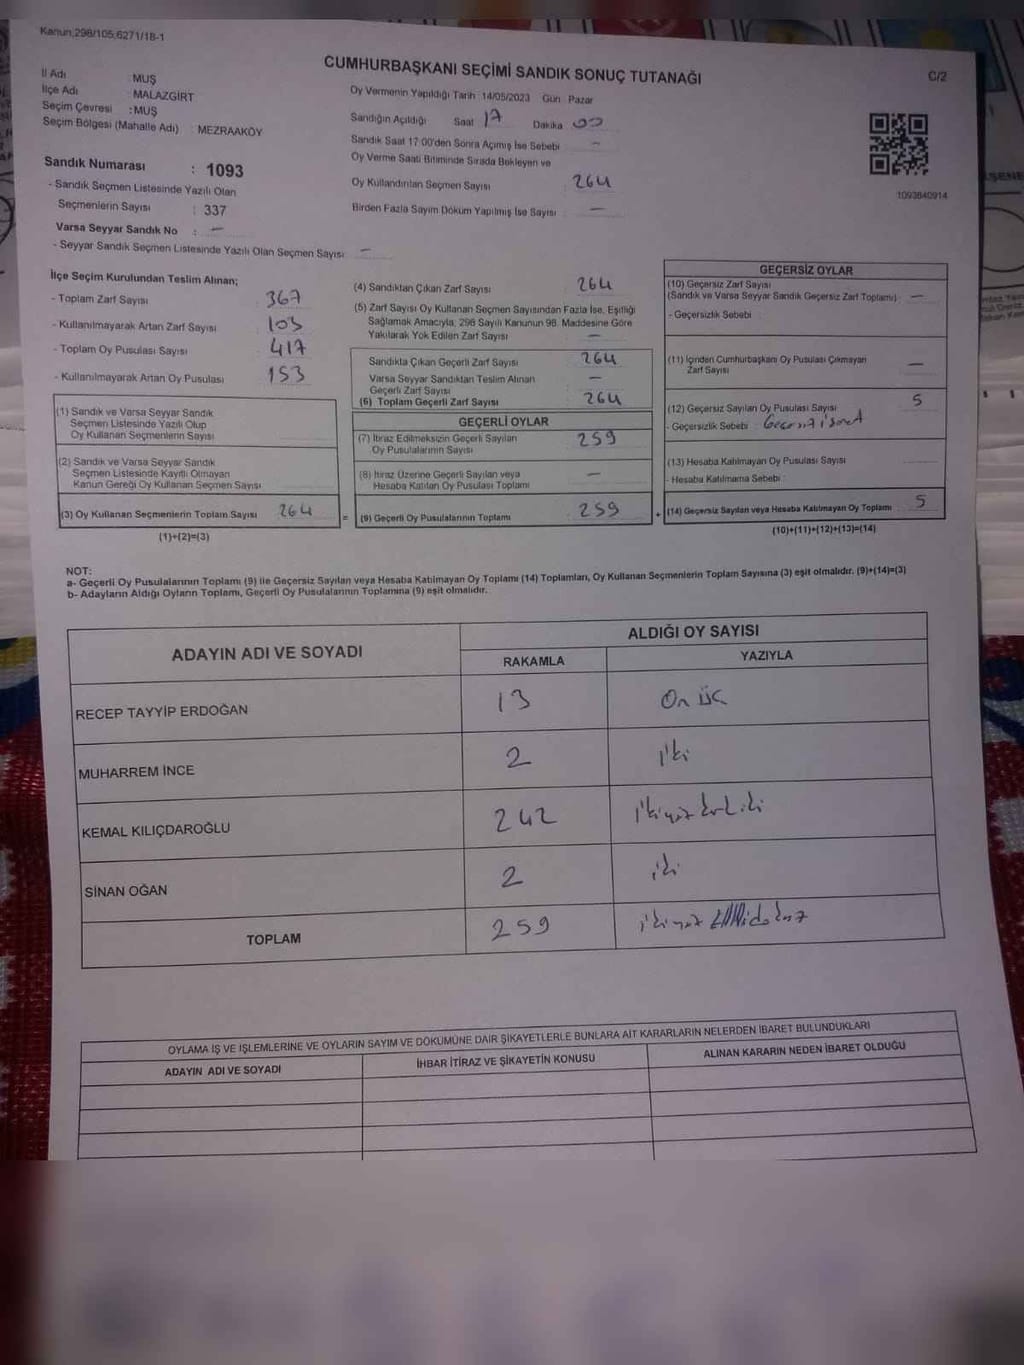 Kanun;298/105;6271/18-1
CUMHURBAŞKANI SEÇİMİ SANDIK SONUÇ TUTANAĞI
C/2
İl Adı : MUŞ
İlçe Adı : MALAZGİRT
Seçim Çevresi : MUŞ
Seçim Bölgesi (Mahalle Adı) : MEZRAAKÖY
Sandık Numarası : 1093
- Sandık Seçmen Listesinde Yazılı Olan
Seçmenlerin Sayısı : 337
Varsa Seyyar Sandık No : -
- Seyyar Sandık Seçmen Listesinde Yazılı Olan Seçmen Sayısı -
Oy Vermenin Yapıldığı Tarih 14/05/2023 Gün Pazar
Sandığın Açıldığı Saat 17 Dakika 00
Sandık Saat 17:00'den Sonra Açımış İse Sebebi -
Oy Verme Saati Bitiminde Sırada Bekleyen ve
Oy Kullandırılan Seçmen Sayısı 264
Birden Fazla Sayım Döküm Yapılmış İse Sayısı -
1093840914
İlçe Seçim Kurulundan Teslim Alınan;
- Toplam Zarf Sayısı 367
- Kullanılmayarak Artan Zarf Sayısı 103
- Toplam Oy Pusulası Sayısı 417
- Kullanılmayarak Artan Oy Pusulası 153
(1) Sandık ve Varsa Seyyar Sandık
Seçmen Listesinde Yazılı Olup
Oy Kullanan Seçmenlerin Sayısı
(2) Sandık ve Varsa Seyyar Sandık
Seçmen Listesinde Kayıtlı Olmayan
Kanun Gereği Oy Kullanan Seçmen Sayısı
(3) Oy Kullanan Seçmenlerin Toplam Sayısı 264
(1)+(2)=(3)
(4) Sandıktan Çıkan Zarf Sayısı 264
(5) Zarf Sayısı Oy Kullanan Seçmen Sayısından Fazla İse, Eşitliği
Sağlamak Amacıyla, 298 Sayılı Kanunun 98. Maddesine Göre
Yakılarak Yok Edilen Zarf Sayısı -
Sandıkta Çıkan Geçerli Zarf Sayısı 264
Varsa Seyyar Sandıktan Teslim Alınan
Geçerli Zarf Sayısı -
(6) Toplam Geçerli Zarf Sayısı 264
GEÇERLİ OYLAR
(7) İtiraz Edilmeksizin Geçerli Sayılan
Oy Pusulalarının Sayısı 259
(8) İtiraz Üzerine Geçerli Sayılan veya
Hesaba Katılan Oy Pusulası Toplamı -
= (9) Geçerli Oy Pusulalarının Toplamı 259
GEÇERSİZ OYLAR
(10) Geçersiz Zarf Sayısı
(Sandık ve Varsa Seyyar Sandık Geçersiz Zarf Toplamı) -
- Geçersizlik Sebebi
(11) İçinden Cumhurbaşkanı Oy Pusulası Çıkmayan
Zarf Sayısı -
(12) Geçersiz Sayılan Oy Pusulası Sayısı 5
- Geçersizlik Sebebi :
(13) Hesaba Katılmayan Oy Pusulası Sayısı
- Hesaba Katılmama Sebebi
+ (14) Geçersiz Sayılan veya Hesaba Katılmayan Oy Toplamı 5
(10)+(11)+(12)+(13)=(14)
NOT:
a- Geçerli Oy Pusulalarının Toplamı (9) ile Geçersiz Sayılan veya Hesaba Katılmayan Oy Toplamı (14) Toplamları, Oy Kullanan Seçmenlerin Toplam Sayısına (3) eşit olmalıdır. (9)+(14)=(3)
b- Adayların Aldığı Oyların Toplamı, Geçerli Oy Pusulalarının Toplamına (9) eşit olmalıdır.
ADAYIN ADI VE SOYADI
ALDIĞI OY SAYISI
RAKAMLA YAZIYLA
RECEP TAYYİP ERDOĞAN 13 On üç
MUHARREM İNCE 2 iki
KEMAL KILIÇDAROĞLU 242 ikiyüz kırkiki
SİNAN OĞAN 2 iki
TOPLAM 259 ikiyüz Ellidokuz
OYLAMA İŞ VE İŞLEMLERİNE VE OYLARIN SAYIM VE DÖKÜMÜNE DAİR ŞİKAYETLERLE BUNLARA AİT KARARLARIN NELERDEN İBARET BULUNDUKLARI
ADAYIN ADI VE SOYADI İHBAR İTİRAZ VE ŞİKAYETİN KONUSU ALINAN KARARIN NEDEN İBARET OLDUĞU